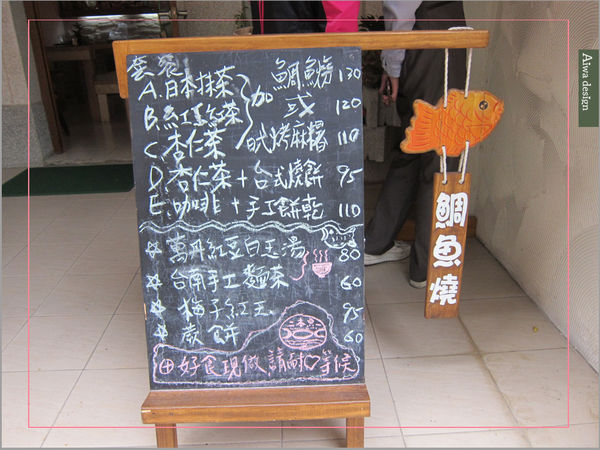 套餐
A.日本抹茶
B.紅玉紅茶
C.杏仁茶
加
鯛魚燒 130
或 120
日式烤麻糬 110
D.杏仁茶+台式燒餅 95
E.咖啡+手工餅乾 110
萬丹紅豆白玉湯 80
台南手工麵茶 60
梅子紅玉 95
蕨餅 60
好食現做請耐心等候
鯛魚燒
Aiwa design